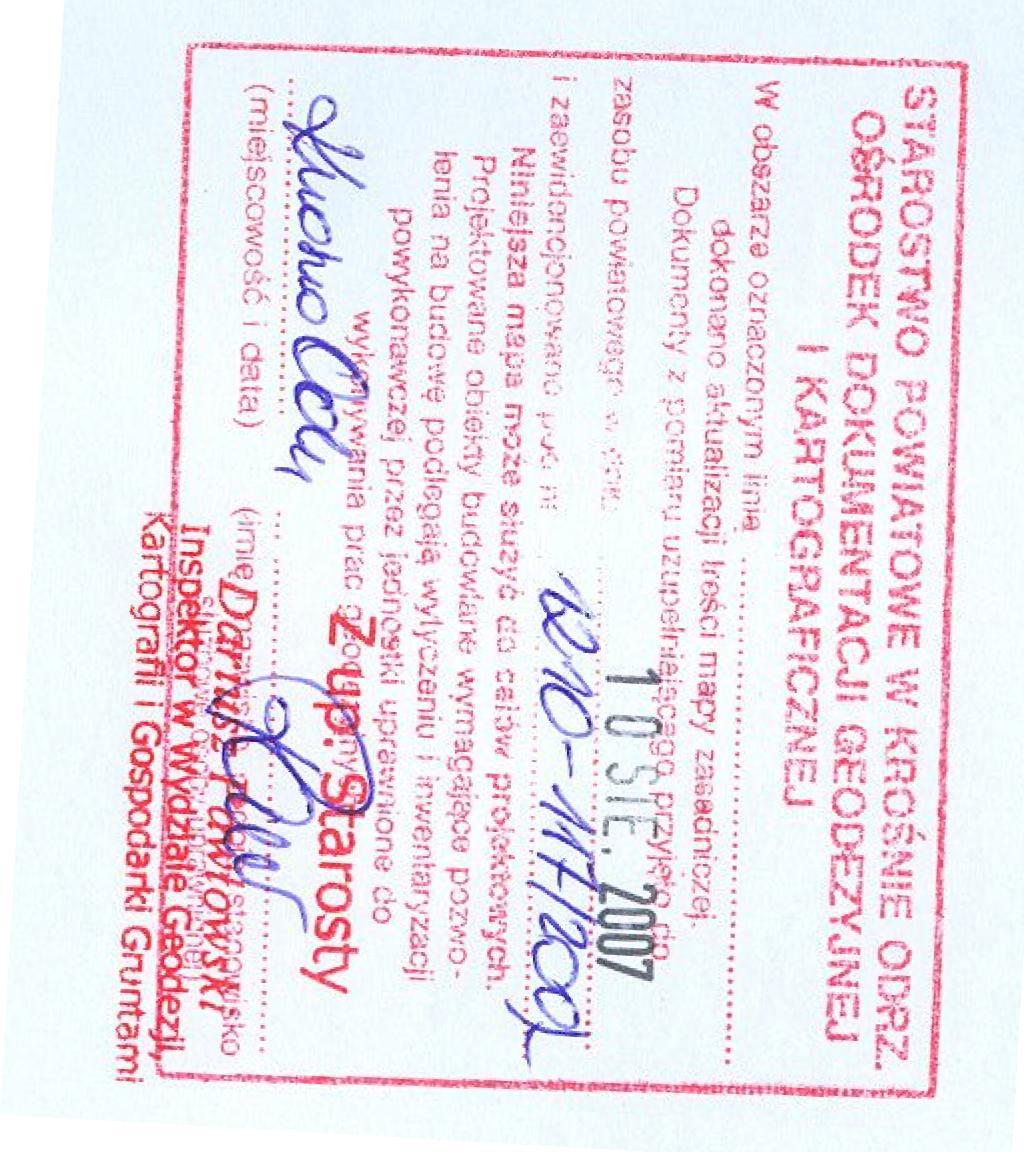 STAROSTWO POWIATOWE W KROŚNIE ODRZ.
OŚRODEK DOKUMENTACJI GEODEZYJNEJ
I KARTOGRAFICZNEJ
W obszarze oznaczonym linią
dokonano aktualizacji treści mapy zasadniczej.
Dokumenty z pomiaru uzupełniającego przyjęto do
zasobu powiatowego w dniu 10 SIE. 2007
i zaewidencjonowano pod nr
Niniejsza mapa może służyć do celów projektowych.
Projektowane obiekty budowlane wymagające pozwo-
lenia na budowę podlegają wytyczeniu i inwentaryzacji
powykonawczej przez jednostki uprawnione do
wykonywania prac
Z up. Starosty
(miejscowość i data)
(imię stanowisko
Inspektor w Wydziale Geodezji,
Kartografii i Gospodarki Gruntami